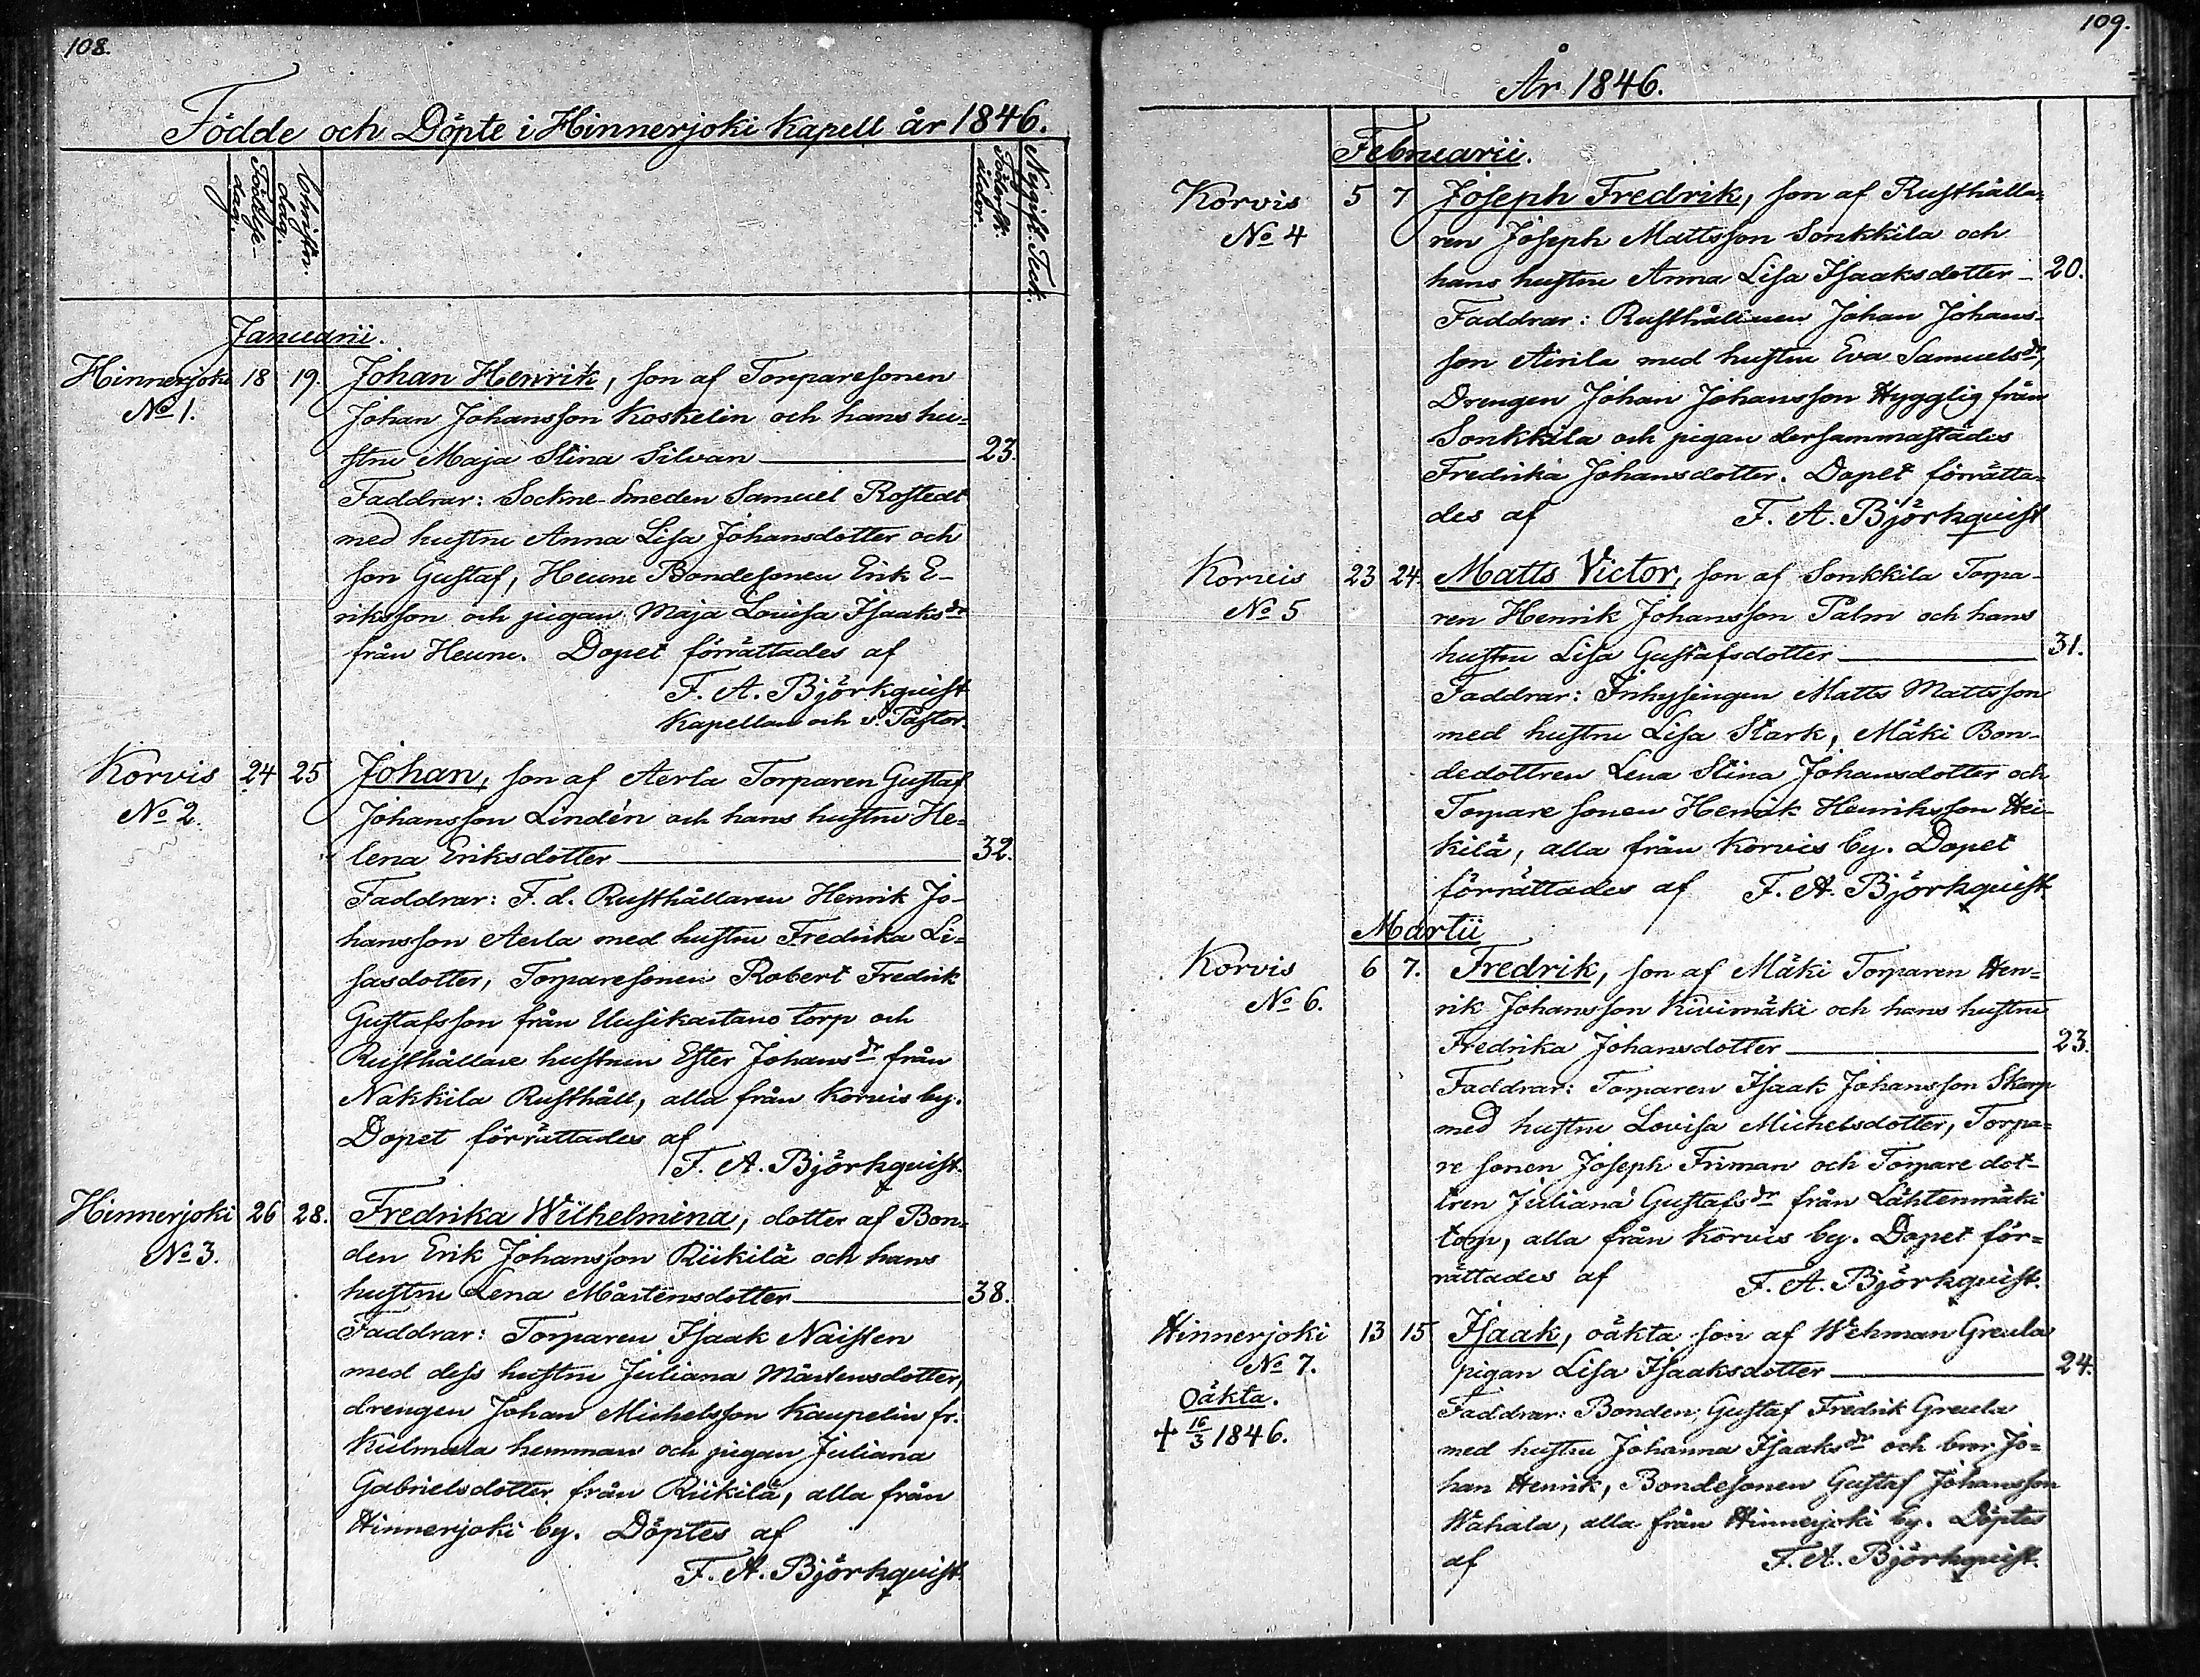 108.
Födde och Döpte i Hinnerjoki Kapell år 1846.
Födelse-
dag.
Christn.
dag.
Födersk.
ålder.
Januarii.
Hinnerjoki 18 19. Johan Henrik, son af Torparesonen
No 1. Johan Johansson Koskelin och hans hu-
stru Maja Stina Silvan 23.
Faddrar: Sockne-Smeden Samuel Rostedt
med hustru Anna Lisa Johansdotter och
son Gustaf, Heuru Bondesonen Erik E-
riksson och pigan Maja Lovisa Isaaksdr
från Heuru. Dopet förrättades af
F. A. Björkquist
Kapellan och v. Pastor.
Korvis 24 25 Johan, son af Aerla Torparen Gustaf
No 2. Johansson Lindén och hans hustru He-
lena Eriksdotter 32.
Faddrar: F. d. Rusthållaren Henrik Jo-
hansson Aerla med hustru Fredrika Li-
sasdotter, Torparesonen Robert Fredrik
Gustafsson från Uusikartano torp och
Rusthållare hustrun Ester Johansdr från
Nakkila Rusthåll, alla från Korvis by.
Dopet förrättades af
F. A. Björkquist.
Hinnerjoki 26 28. Fredrika Wilhelmina, dotter af Bon-
No 3. den Erik Johansson Riikilä och hans
hustru Lena Mårtensdotter 38.
Faddrar: Torparen Isaak Naisten
med dess hustru Juliana Mårtensdotter,
drengen Johan Michelsson Kaupelin fr.
Kulmala hemman och pigan Juliana
Gabrielsdotter från Riikilä, alla från
Hinnerjoki by. Döptes af
F. A. Björkquist.
109.
År 1846.
Februarii.
Korvis 5 7 Joseph Fredrik, son af Rusthålla-
No 4 ren Joseph Mattsson Sonkkila och
hans hustru Anna Lisa Isaaksdotter 20.
Faddrar: Rusthållaren Johan Johans-
son Airila med hustru Eva Samuelsdr,
Drengen Johan Johansson Hygglig från
Sonkkila och pigan dersammastädes
Fredrika Johansdotter. Dopet förrätta-
des af F. A. Björkquist
Korvis 23 24. Matts Victor, son af Sonkkila Torpa-
No 5 ren Henrik Johansson Palm och hans
hustru Lisa Gustafsdotter 31.
Faddrar: Inhysingen Matts Mattsson
med hustru Lisa Stark, Mäki Bon-
dedottren Lena Stina Johansdotter och
Torpare sonen Henrik Henriksson Hei-
kilä, alla från Korvis by. Dopet
förrättades af F. A. Björkquist.
Martii
Korvis 6 7. Fredrik, son af Mäki Torparen Hen-
No 6. rik Johansson Kivimäki och hans hustru
Fredrika Johansdotter 23.
Faddrar: Torparen Isaak Johansson Skarp
med hustru Lovisa Michelsdotter, Torpa-
re sonen Joseph Friman och Torpare dot-
tren Juliana Gustafsdr från Lähtenmäki
torp, alla från Korvis by. Dopet för-
rättades af F. A. Björkquist.
Hinnerjoki 13 15 Isaak, oäkta son af Wehman Greula
No 7. pigan Lisa Isaaksdotter 24.
Oäkta. Faddrar: Bonden Gustaf Fredrik Greula
+ 16/3 1846. med hustru Johanna Isaaksdr och bror Jo-
han Henrik, Bondesonen Gustaf Johansson
Wahala, alla från Hinnerjoki by. Döptes
af F. A. Björkquist.